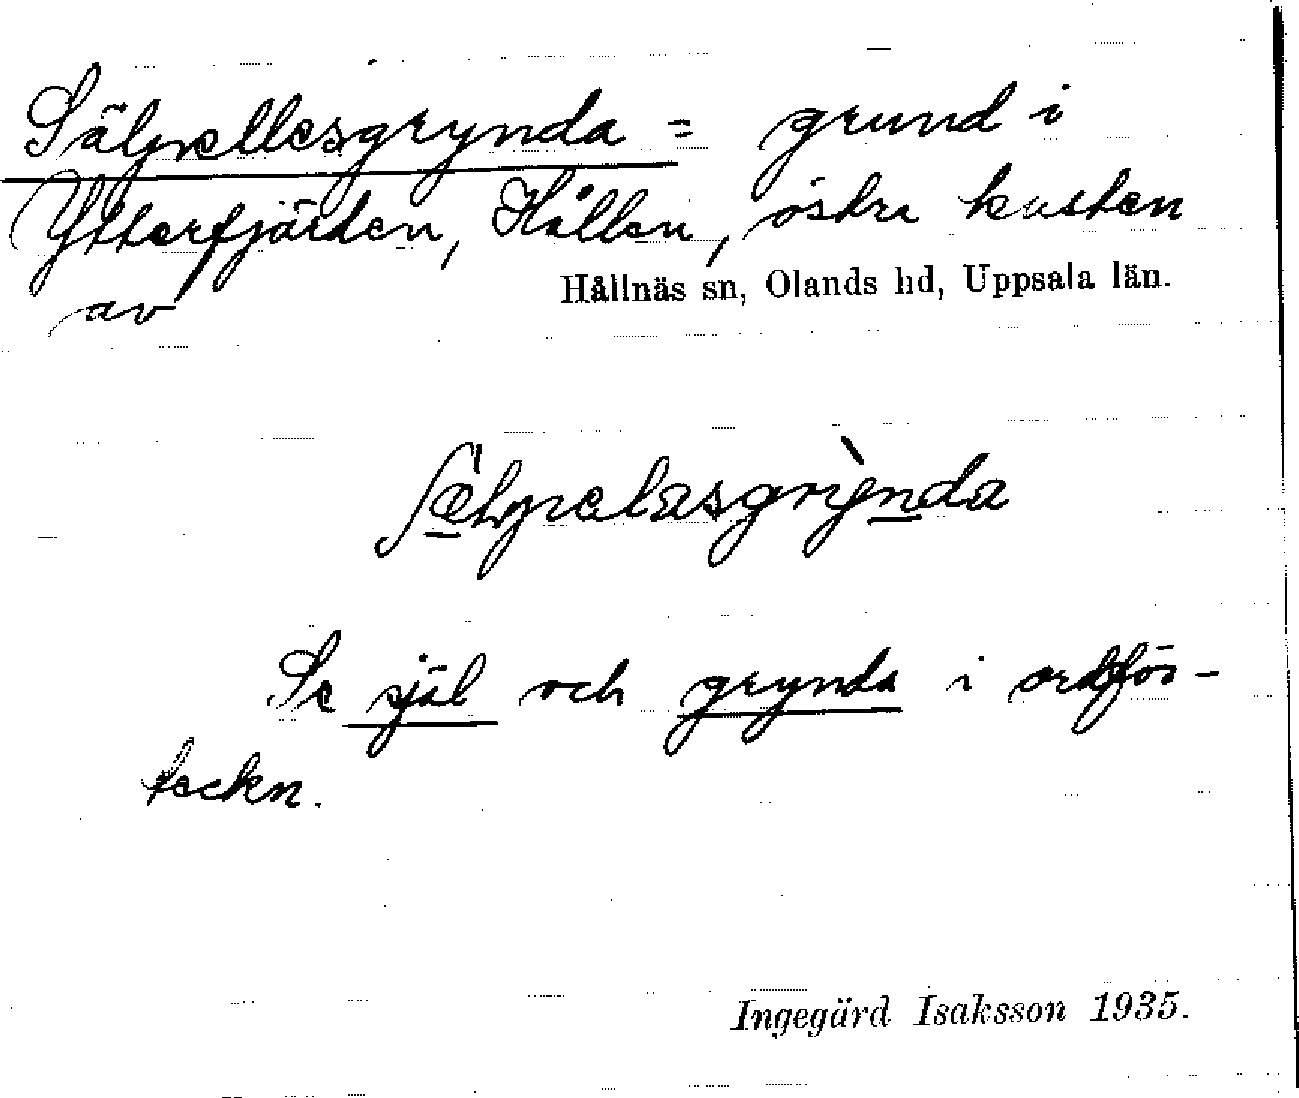 Sälpellesgrynda = grund i
Ytterfjärden, Hållen, östra kusten
av Hållnäs sn, Olands hd, Uppsala län.
Se själ och grynda i ordför-
teckn.
Ingegärd Isaksson 1935.